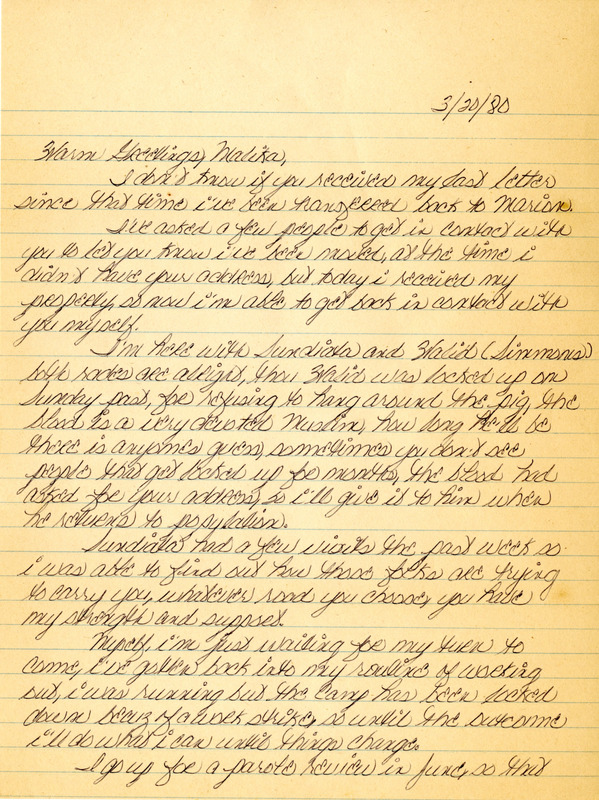 3/20/80
Warm Greetings, Malika,
I don't know if you received my last letter
since that time i've been transfeered back to Marion.
I've asked a few people to get in contact with
you to let you know i've been moved, at the time i
didn't have your address, but today i received my
property, so now i'm able to get back in contact with
you myself.
I'm here with Sundiata and Walid (Simmons)
both rades are allright, thou Walid was locked up on
Sunday past, for refusing to hang around the pig, the
blood is a very devoted Muslim, how long he'll be
there is anyones guess, sometimes you don't see
people that get locked up for months, the blood had
asked for your address, so i'll give it to him when
he returns to population.
Sundiata had a few visits the past week so
i was able to find out how those folks are trying
to carry you, whatever road you choose, you have
my strength and support.
Myself, i'm just waiting for my turn to
come, i've gotten back into my routine of working
out, i was running but the camp has been locked
down becuz of a work strike, so until the outcome
i'll do what i can until things change.
I go up for a parole review in june, so that